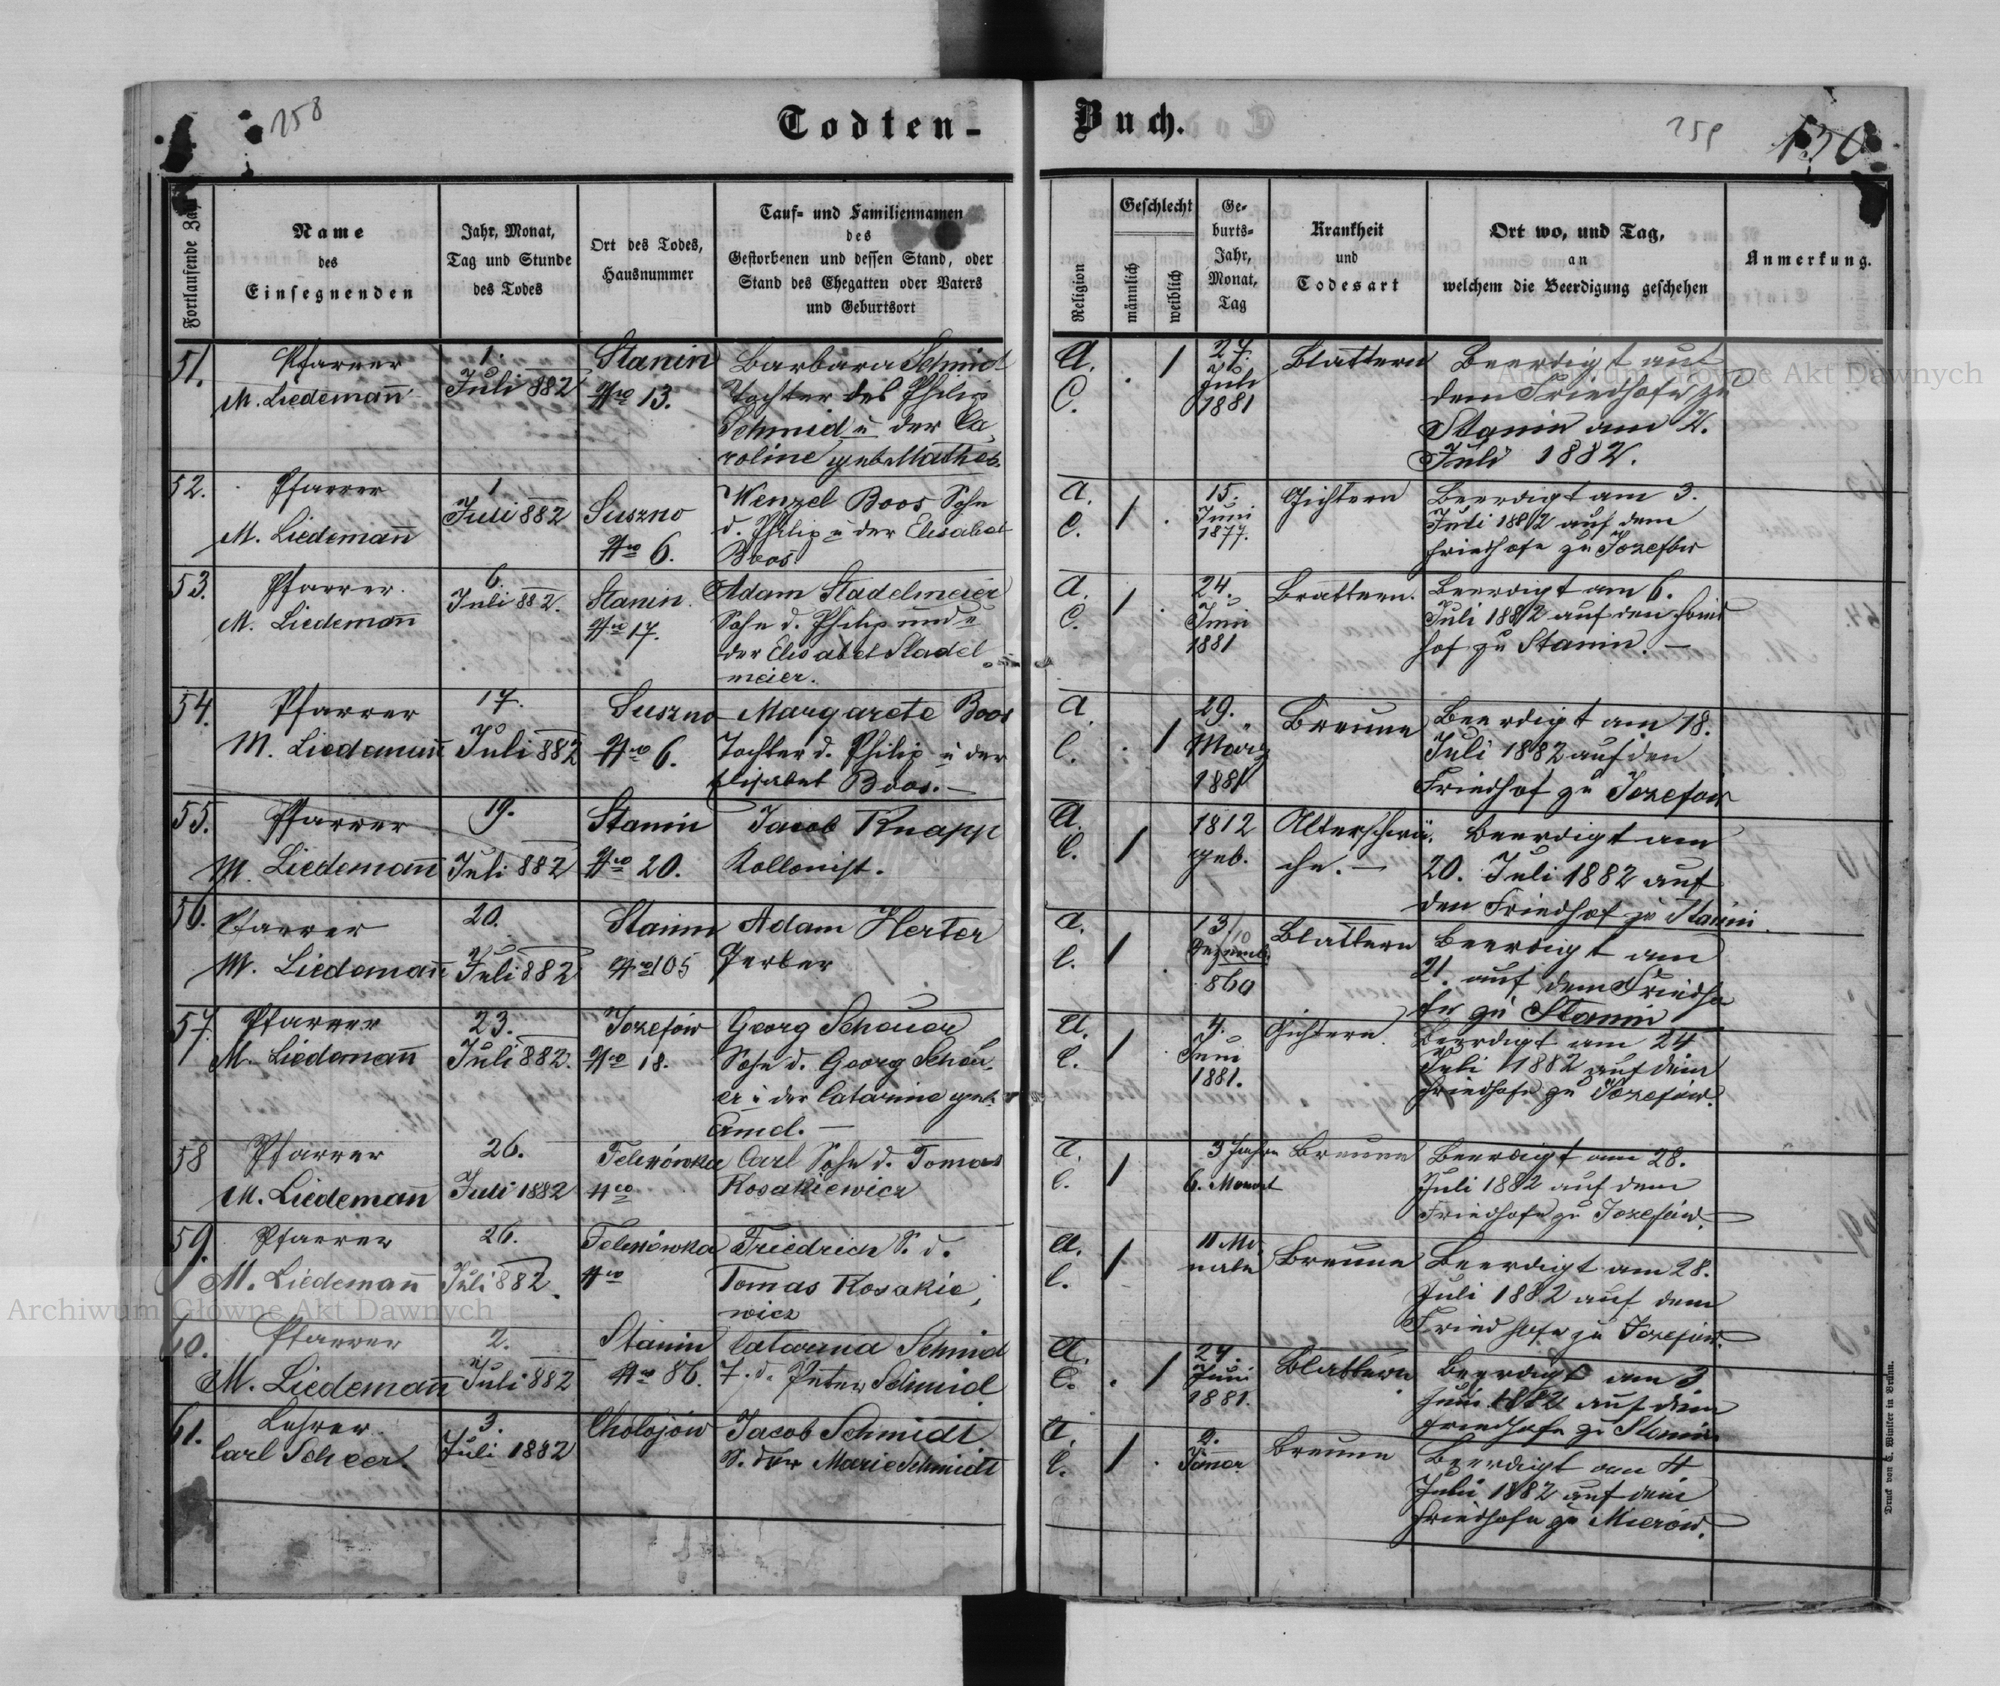 158
Todten-
Buch.
159
150
Fortlaufende Zahl
Name
des
Einsegnenden
Jahr, Monat,
Tag und Stunde
des Todes
Ort des Todes,
Hausnummer
Tauf- und Familiennamen
des
Gestorbenen und dessen Stand, oder
Stand des Ehegatten oder Vaters
und Geburtsort
Religion
Geschlecht
männlich
weiblich
Ge-
burts-
Jahr,
Monat,
Tag
Krankheit
und
Todesart
Ort wo, und Tag,
an
welchem die Beerdigung geschehen
Anmerkung.
51.
Pfarrer
M. Liedemann
1.
Juli 882
Stanin
Nro 13.
Barbara Schmid
Tochter des Philip
Schmid u der Ca
roline geb. Mathes.
A.
C.
. 1
27.
Juli
1881
Blattern
Beerdigt auf
dem Friedhofe zu
Stanin am 2.
Juli 1882.
52.
Pfarrer
M. Liedemann
1.
Juli 882
Suszno
Nro 6.
Wenzel Boos Sohn
d. Philip u der Elisabet
Boos.
A.
C.
1 .
15.
Juni
1877.
Gichtern
Beerdigt am 3.
Juli 1882 auf dem
Friedhofe zu Jozefow
53.
Pfarrer.
M. Liedemann
6.
Juli 882.
Stanin.
Nro 17.
Adam Stadelmeier
Sohn d. Philip und
der Elisabet Stadel
meier.
A.
C.
1 .
24.
Juni
1881
Blattern.
Beerdigt am 6.
Juli 1882 auf den Fried
hof zu Stanin. —
54.
Pfarrer
M. Liedemann
17.
Juli 882
Suszno
Nro 6.
Margarete Boos
Tochter d. Philip u der
Elisabet Boos. —
A.
C.
. 1
29.
März
1881
Breune
Beerdigt am 18.
Juli 1882 auf den
Friedhof zu Jozefow
55.
Pfarrer
M. Liedemann
19.
Juli 882
Stanin
Nro 20.
Jacob Knapp
Kollonist.
A.
C.
1
1812
geb.
Alterschwä.
che. —
Beerdigt am
20. Juli 1882 auf
den Friedhof zu Stanin.
56.
Pfarrer
M. Liedemann
20.
Juli 882
Stanin
Nro 105
Adam Herter
Gerber
A.
C.
1 .
13/10
Dezemb.
860
Blattern
Beerdigt am
21. auf dem Friedho
fe zu Stanin
57.
Pfarrer
M. Liedemann
23.
Juli 882.
Jozefów
Nro 18.
Georg Scheuer
Sohn d. Georg Scheu,
er u der Catarine geb.
Amd. —
A.
C.
1
4.
Juni
1881.
Gichtern.
Beerdigt am 24
Juli 1882 auf dem
Friedhofe zu Jozefów.
58
Pfarrer
M. Liedemann
26.
Juli 1882
Nro
Carl Sohn d. Tomas
Kosakiewicz
A.
C.
1
3 Jahre
6. Monat
Breune
Beerdigt am 28.
Juli 1882 auf dem
Friedhofe zu Jozefów.
59.
Pfarrer
M. Liedemann
26.
Juli 882.
Nro
Friedrich S. d.
Tomas Kosakie,
wicz
A.
C.
1
11 Mo,
nate
Breune
Beerdigt am 28.
Juli 1882 auf dem
Friedhofe zu Jozefow.
60.
Pfarrer
M. Liedemann
2.
Juli 882
Stanin
Nro 86.
Catarina Schmid
T. d. Peter Schmid
A.
C.
. 1
27.
Juni
1881.
Blattern
Beerdigt am 3
Juli 1882 auf dem
Friedhofe zu Stanin.
61.
Lehrer
Carl Scheer.
3.
Juli 1882
Cholojów
Jacob Schmidt
S. der Marie Schmidt
A.
C.
1 .
2.
Jänner.
Breune
Beerdigt am 4
Juli 1882 auf dem
Friedhofe zu Mierów.
Druck von C. Winiker in Brünn.
Archiwum Główne Akt Dawnych
Archiwum Główne Akt Dawnych